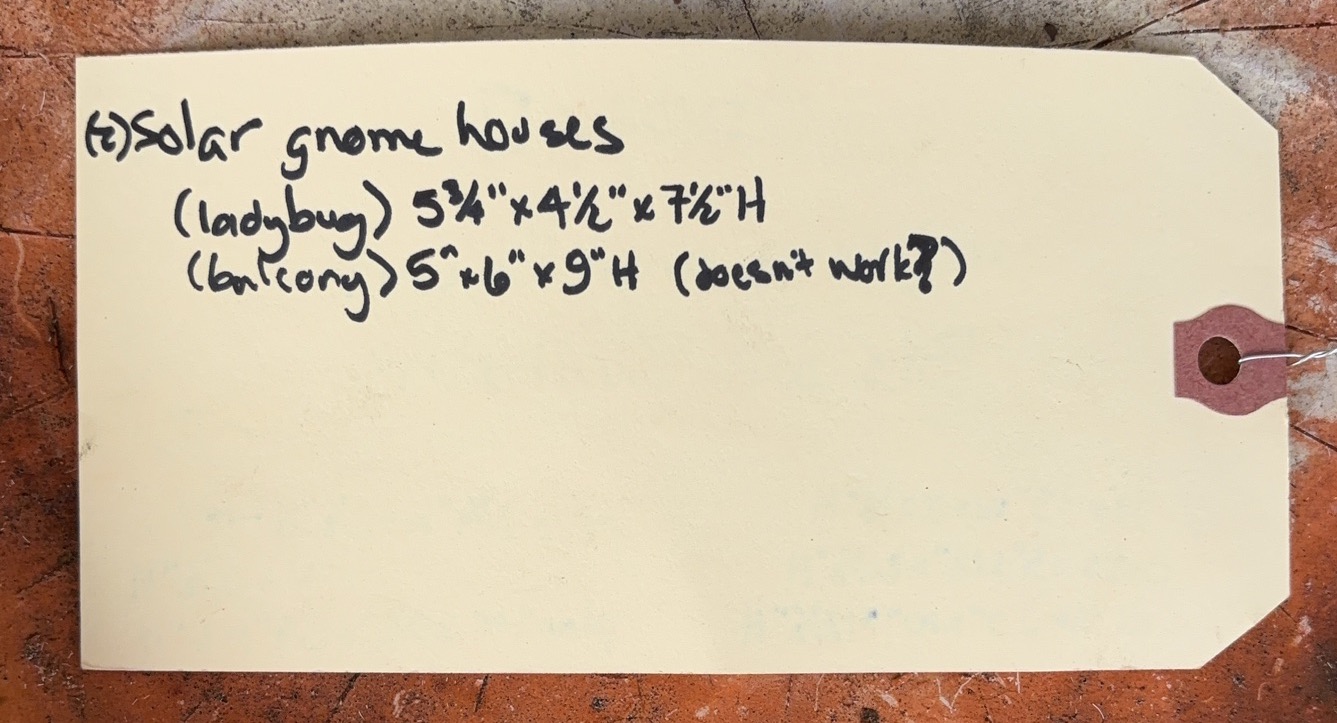 (2) Solar gnome houses
(ladybug) 5 3/4" x 4 1/2" x 7 1/2" H
(balcony) 5" x 6" x 9" H (doesn't work?)